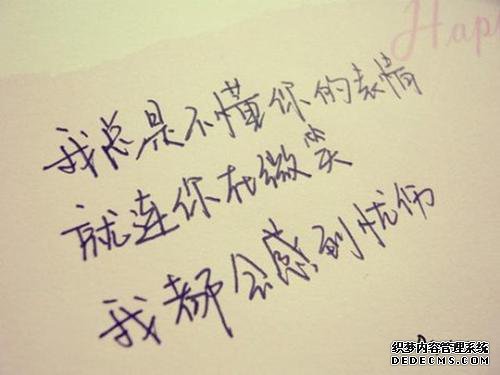 Hap
我总是不懂你的表情
就连你在微笑
我都会感到忧伤
织梦内容管理系统
DEDECMS.COM